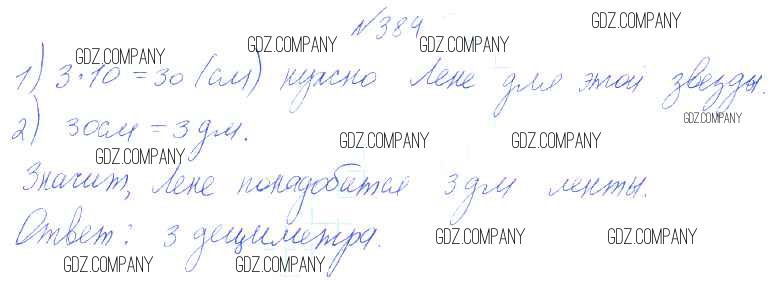 №384
1) 3·10 = 30 (см) нужно Лене для этой звезды.
2) 30см = 3 дм.
Значит, Лене понадобится 3 дм ленты.
Ответ: 3 дециметра.
GDZ.COMPANY
GDZ.COMPANY GDZ.COMPANY
GDZ.COMPANY
GDZ.COMPANY
GDZ.COMPANY GDZ.COMPANY
GDZ.COMPANY
GDZ.COMPANY GDZ.COMPANY
GDZ.COMPANY GDZ.COMPANY